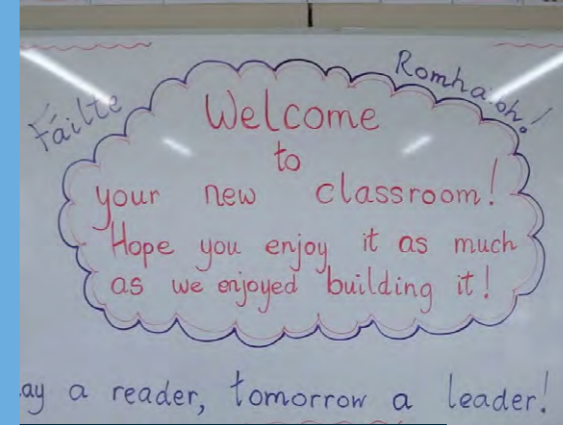 Fáilte
Romhaoh!
Welcome
to
your new classroom!
Hope you enjoy it as much
as we enjoyed building it!
ay a reader, tomorrow a leader!